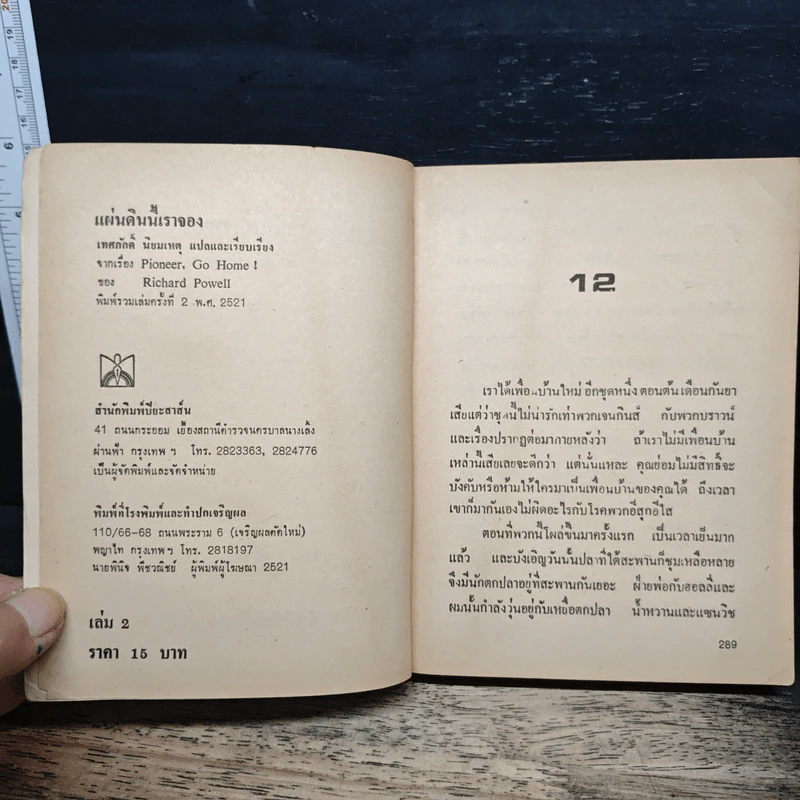 แผ่นดินนี้เราจอง
เทศภักดิ์ นิยมเหตุ แปลและเรียบเรียง
จากเรื่อง Pioneer, Go Home !
ของ Richard Powell
พิมพ์รวมเล่มครั้งที่ 2 พ.ศ. 2521
สำนักพิมพ์ปิยะสาส์น
41 ถนนกระออม เยื้องสถานีตำรวจนครบาลนางเลิ้ง
ผ่านฟ้า กรุงเทพ ฯ โทร. 2823363, 2824776
เป็นผู้จัดพิมพ์และจัดจำหน่าย
พิมพ์ที่โรงพิมพ์และทำปกเจริญผล
110/66-68 ถนนพระราม 6 (เจริญผลตัดใหม่)
พญาไท กรุงเทพ ฯ โทร. 2818197
นายพินิจ พีชวณิชย์ ผู้พิมพ์ผู้โฆษณา 2521
เล่ม 2
ราคา 15 บาท
12
เราได้เพื่อนบ้านใหม่ อีกชุดหนึ่ง ตอนต้นเดือนกันยา
เสียแต่ว่าชุดนี้ไม่น่ารักเท่าพวกเจนกินส์ กับพวกบราวน์
และเรื่องปรากฏต่อมาภายหลังว่า ถ้าเราไม่มีเพื่อนบ้าน
เหล่านี้เสียเลยจะดีกว่า แต่นั่นแหละ คุณย่อมไม่มีสิทธิ์จะ
บังคับหรือห้ามให้ใครมาเป็นเพื่อนบ้านของคุณได้ ถึงเวลา
เขาก็มากันเองไม่ผิดอะไรกับโรคพวกอีสุกอีใส
ตอนที่พวกนี้โผล่ขึ้นมาครั้งแรก เป็นเวลาเย็นมาก
แล้ว และบังเอิญวันนั้นปลาที่ใต้สะพานก็ชุมเหลือหลาย
จึงมีนักตกปลาอยู่ที่สะพานกันเยอะ ฝ่ายพ่อกับฮอลลี่และ
ผมนั้นกำลังวุ่นอยู่กับเหยื่อตกปลา น้ำหวานและแซนวิช
289
6
20
19
18
17
16